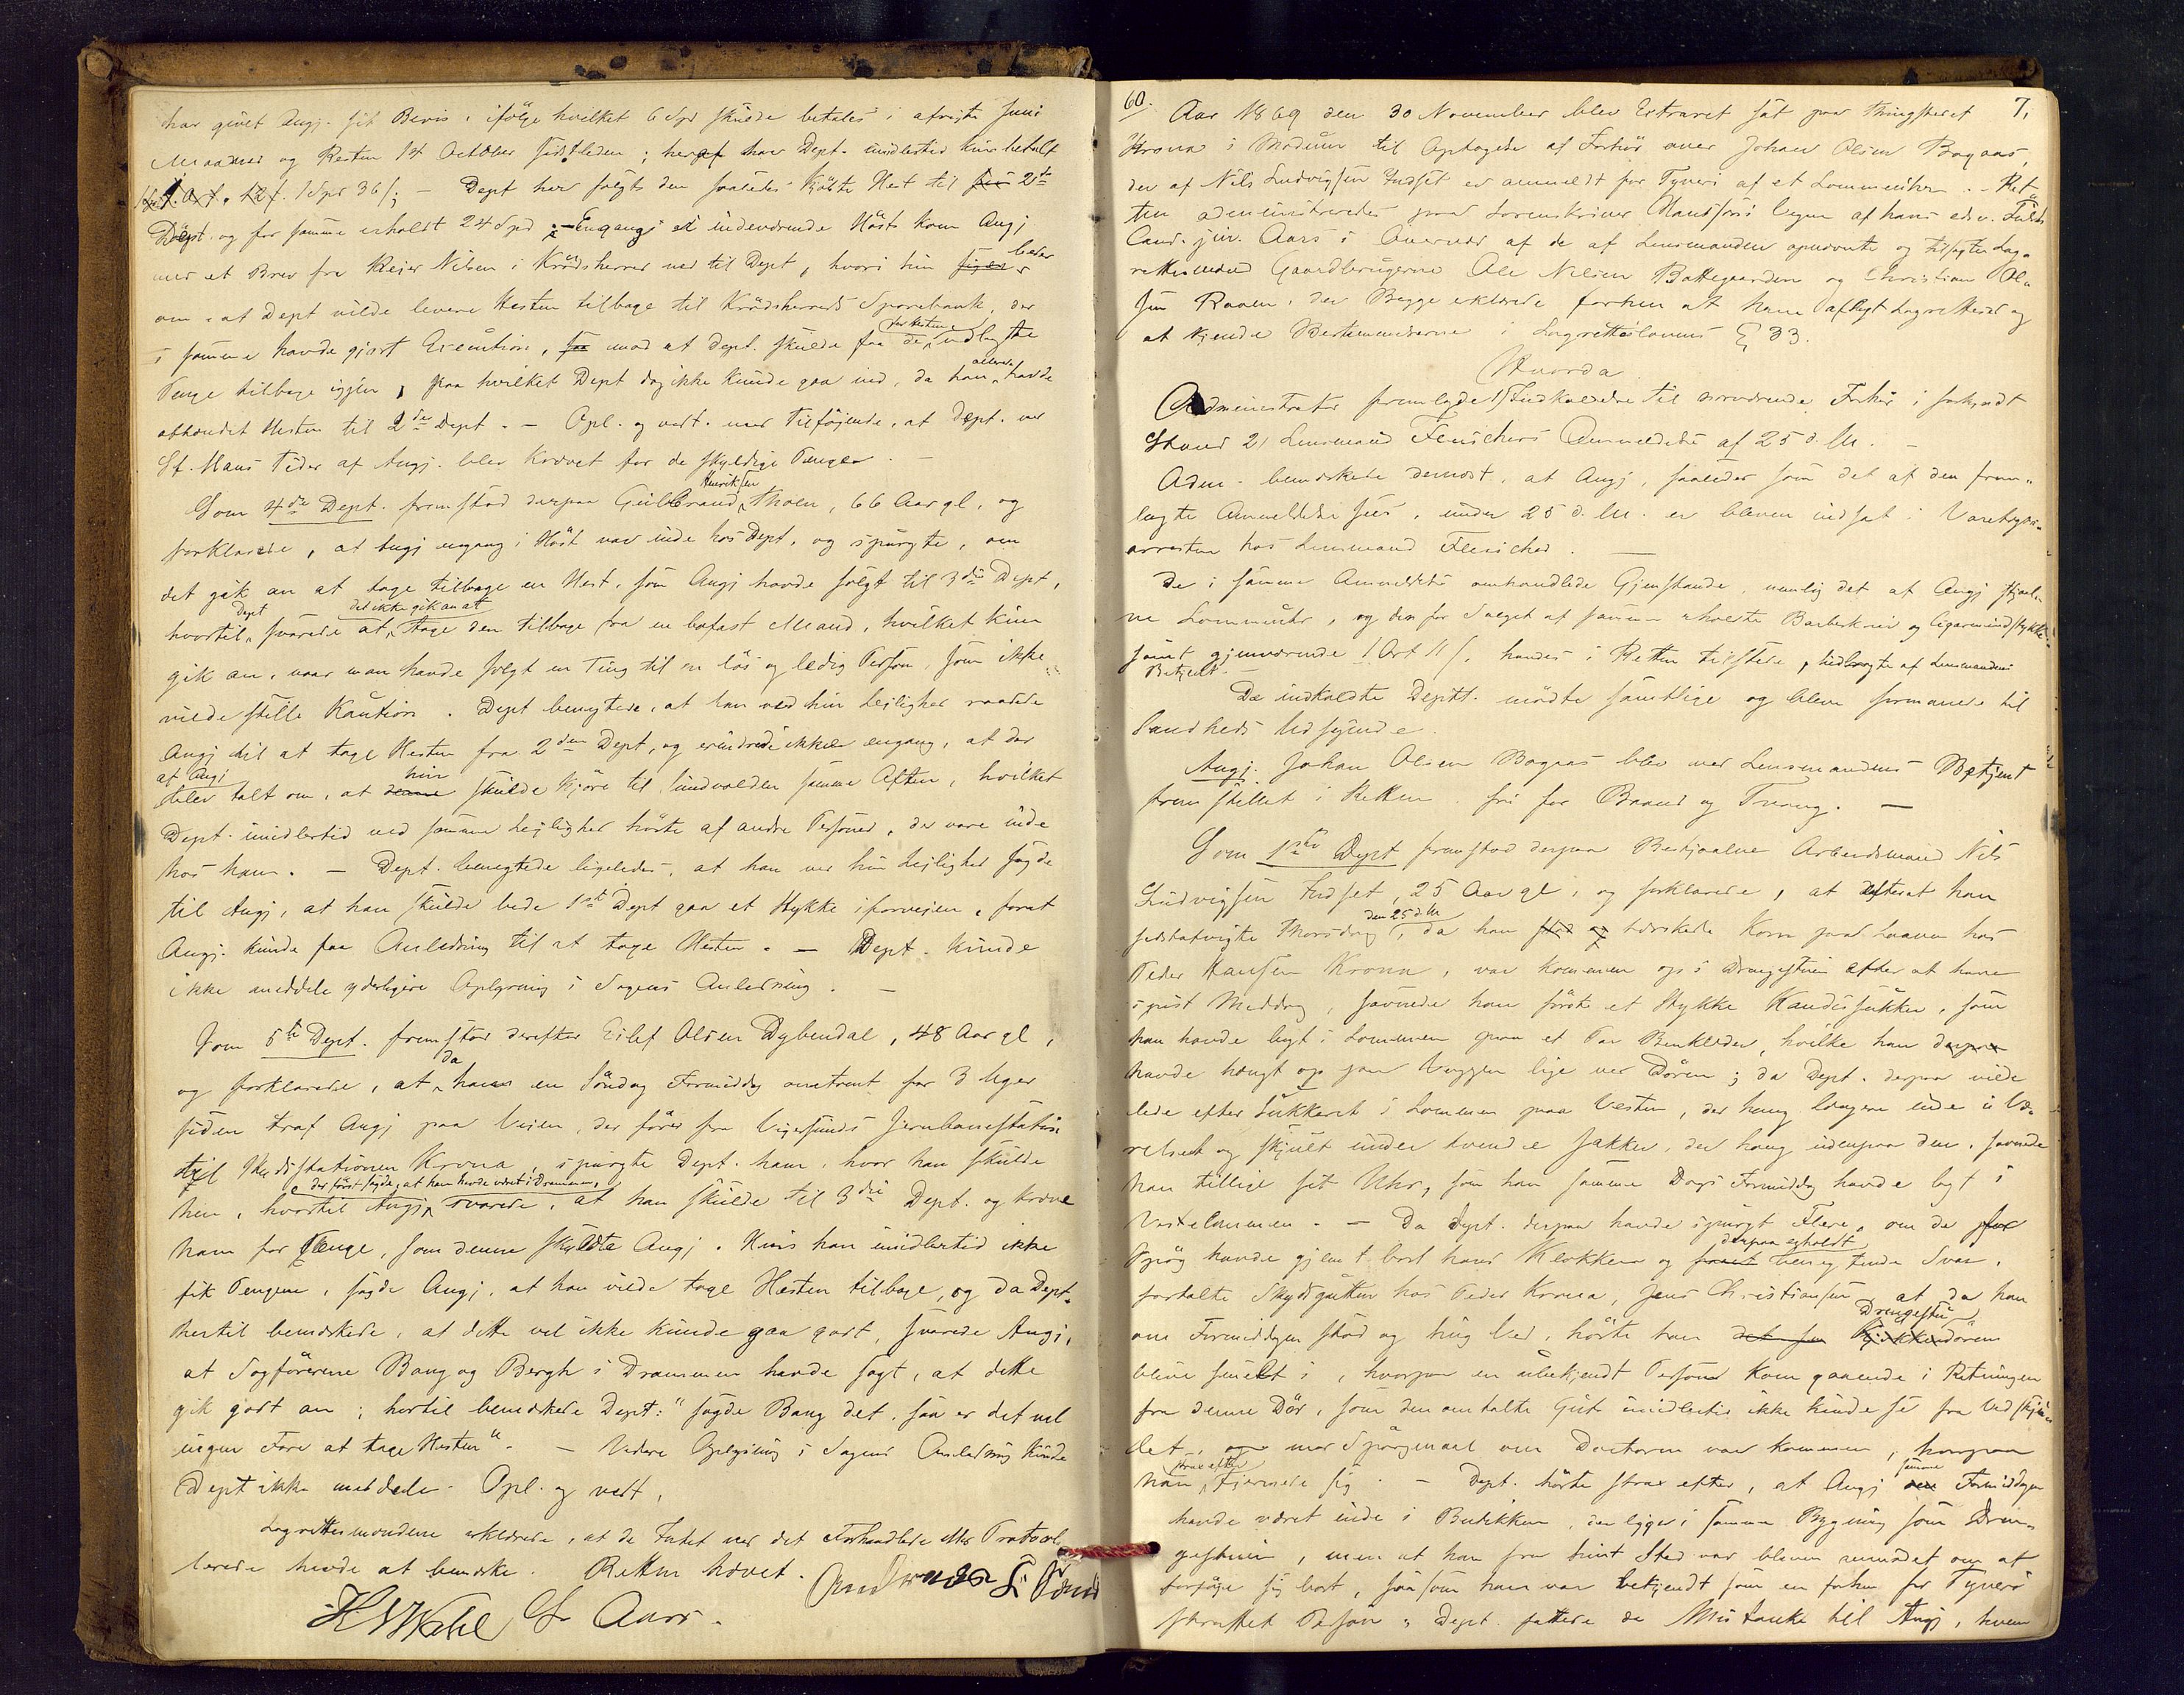 har givet Angj. sit Bevis, ifølge hvilket 6 Spd skulde betales i afvigte Juni
Maaned og Resten 14 October sidstleden; heraf har Dept. imidlertid kun betalt
1 Spd 36 ſ; — Dept har solgt den saaledes kjøbte Hest til 2de
Dept. og for samme erholdt 24 Spd. — Engang i indeværende Høst kom Angj
med et Brev fra Reier Nilsen i Krødsherred ned til Dept, hvori hin beder
om, at Dept vilde levere Hesten tilbage til Krødsherreds Sparebank, der
i samme havde gjort Execution, mod at Dept. skulde faa de for Hesten udlagte
Penge tilbage igjen, paa hvilket Dept dog ikke kunde gaa ind, da han allerede havde
afhændet Hesten til 2den Dept. — Opl. og vedt. med Tilføjende, at Dept. ved
St. Hans Tider af Angj. blev krævet for de skyldige Penge. —
Som 4de Dept. fremstod derpaa Gulbrand Henriksen Moen, 66 Aar gl, og
forklarede, at Angj engang i Høst var inde hos Dept. og spurgte, om
det gik an at tage tilbage en Hest, som Angj havde solgt til 3die Dept,
hvortil Dept svarede at det ikke gik an at tage den tilbage fra en bofast Mand, hvilket kun
gik an, naar man havde solgt en Ting til en løs og ledig Person, som ikke
vilde stille Kaution. Dept benegtede, at han ved hin Leilighed raadede
Angj til at tage Hesten fra 2den Dept, og erindrede ikke engang, at der
af Angj blev talt om, at hin skulde kjøre til Lindvolden samme Aften, hvilket
Dept. imidlertid ved samme Leilighed hørte af andre Personer, der vare inde
hos ham. — Dept. benegtede ligeledes, at han ved hin Leilighed sagde
til Angj, at han skulde bede 1ste Dept gaa et Stykke iforveien, forat
Angj. kunde faa Anledning til at tage Hesten. — Dept. kunde
ikke meddele yderligere Oplysning i Sagens Anledning. —
Som 5te Dept. fremstod derefter Eilef Olsen Dybendal, 48 Aar gl,
og forklarede, at da han en Søndag Formiddag omtrent for 3 Uger
siden traf Angj paa Veien, der fører fra Vigersunds Jernbanestation
til Skydsstationen Krona, spurgte Dept. ham, hvor han skulde
hen, hvortil Angj, der først sagde, at han havde været i Drammen, svarede, at han skulde til 3die Dept. og kræve
ham for Penge, som denne skyldte Angj. Hvis han imidlertid ikke
fik Pengene, sagde Angj, at han vilde tage Hesten tilbage, og da Dept.
hertil bemærkede, at dette vel ikke kunde gaa godt, svarede Angj,
at Sagførerne Bang og Bergh i Drammen havde sagt, at dette
gik godt an; hertil bemærkede Dept: "sagde Bang det, saa er det vel
ingen Fare at tage Hesten". — Videre Oplysning i Sagens Anledning kunde
Dept ikke meddele. Opl. og vedt.
Lagrettesmændene erklærede, at de Intet ved det Forhandlede eller Protocol-
lerede havde at bemærke. Retten hævet.
Aars.
60. Aar 1869 den 30 November blev Extraret sat paa Thingstedet 7.
Krona i Modum til Optagelse af Forhør over Johan Olsen Bagaas,
der af Nils Ludvigsen Indset er anmeldt for Tyveri af et Lommeuhr. — Ret-
ten administreredes paa Sorenskriver Vegne af hans edsv. Fuldm
Cand. jur. Aars i Overvær af de af Lensmanden opnævnte og tilsagte Lag-
rettesmænd Gaardbrugerne Ole Nilsen Battegaarden og Christian Ol-
sen Raaen, der Begge erklærede forhen at have aflagt Lagretteed og
at kjende Bestemmelserne i Lagretteslovens § 33.
Hvorda
Administrator fremlagde 1) Indkaldelse til nærværende Forhør i forkyndt
Stand 2) Lensmand Fleischers Anmeldelse af 25 d. M. —
Adm. bemærkede dernæst, at Angj, saaledes som det af den frem-
lagte Anmeldelse sees, under 25 d. M. er bleven indsat i Varetægts-
arresten hos Lensmand Fleischer. —
De i samme Anmeldelse omhandlede Gjenstande, nemlig det af Angj stjaal-
ne Lommeuhr, og den for Salget af samme erholdte Barberkniv og Cigarmundstykke
samt gjenværende 1 Ort 11 ſ, havdes i Retten tilstede, medbragte af Lensmandens
Betjent.
De indkaldte Deptt. mødte samtlige og bleve formanede til
Sandheds Udsigende.
Angj. Johan Olsen Bagaas blev ved Lensmandens Betjent
fremstillet i Retten fri for Baand og Tvang. —
Som 1ste Dept fremstod derpaa Bestjaalne Arbeidsmand Nils
Ludvigsen Indset, 25 Aar gl, og forklarede, at efterat han
sidstafvigte Thorsdag den 25 d. M, da han tærskede Korn paa Laaven hos
Peder Hansen Krona, var kommen op i Drengestuen efter at have
spist Middag, savnede han først et Stykke Kandissukker, som
han havde lagt i Lommen paa et Par Benklæder, hvilke han
havde hængt op paa Væggen lige ved Døren; da Dept. derpaa vilde
lede efter Sukkeret i Lommen paa Vesten, der hang længere inde i Væ-
relset og skjult under tvende Jakker, der hang udenpaa den, savnede
han tillige sit Uhr, som han samme Dags Formiddag havde lagt i
Vestelommen. — Da Dept. derpaa havde spurgt Flere, om de for
Spøg havde gjemt bort hans Klokke og derpaa erholdt benegtende Svar,
fortalte Skydsgutten hos Peder Krona, Jens Christiansen, at da han
om Formiddagen stod og hug Ved, hørte han Drengestudøren
blive smeldt i, hvorpaa en ubekjendt Person kom gaaende i Retningen
fra denne Dør, som den omtalte Gut imidlertid ikke kunde se fra Vedskju-
let, med Spørgsmaal om Doctoren var kommen, hvorpaa
han strax efter fjernede sig. — Dept. hørte strax efter, at Angj samme Formiddag
havde været inde i Butikken, der ligger i samme Bygning som Dren-
gestuen, men at han fra hint Sted var bleven anmodet om at
forføie sig bort, saasom han var bekjendt som en forhen for Tyveri
straffet Person. Dept. fattede da Mistanke til Angj, hvem